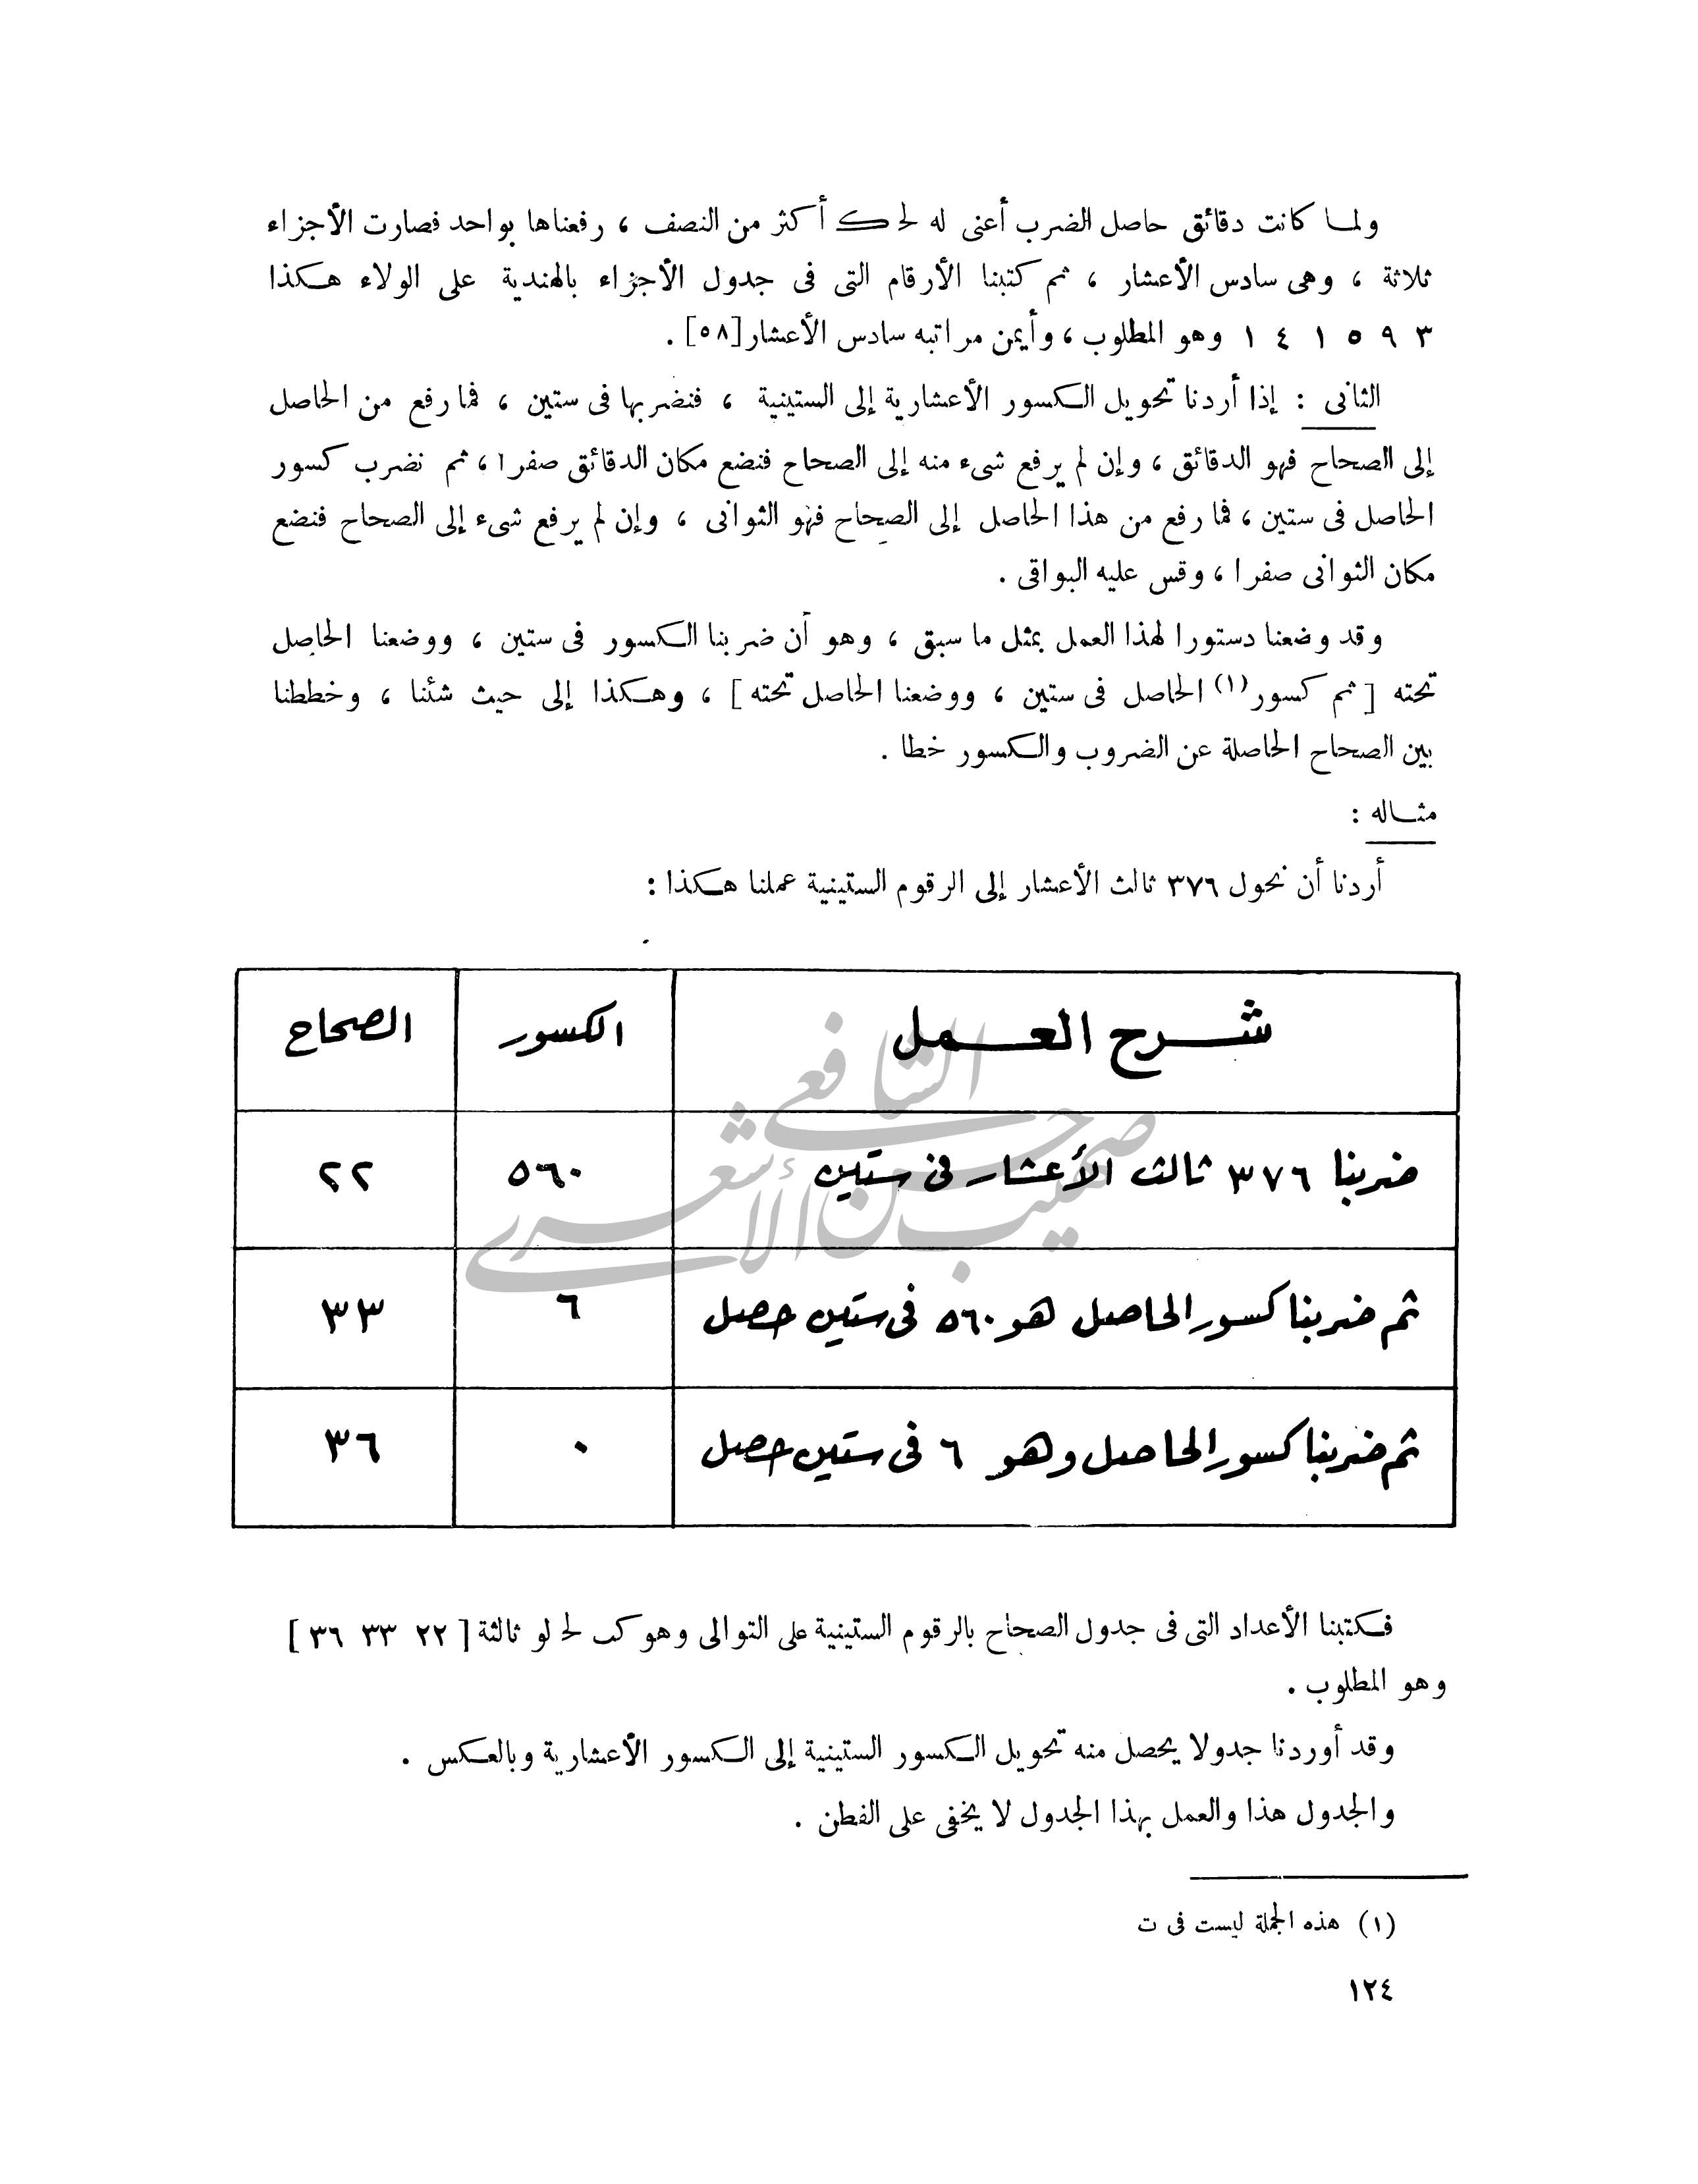 ولمـا كانت دقائق حاصل الضرب أعنى له لحـ ك أكثر من النصف ، رفعناها بواحد فصارت الأجزاء
ثلاثة ، وهى سادس الأعشار ، ثم كتبنا الأرقام التى فى جدول الأجزاء بالهندية على الولاء هكذا
٣ ٩ ٥ ١ ٤ ١ وهو المطلوب ، وأيمن مراتبه سادس الأعشار [٥٨] .
الثانى : إذا أردنا تحويل الكسور الأعشارية إلى الستينية ، فنضربها فى ستين ، فما رفع من الحاصل
إلى الصحاح فهو الدقائق ، وإن لم يرفع شىء منه إلى الصحاح فنضع مكان الدقائق صفرا ، ثم نضرب كسور
الحاصل فى ستين ، فما رفع من هذا الحاصل إلى الصحاح فهو الثوانى ، وإن لم يرفع شىء إلى الصحاح فنضع
مكان الثوانى صفرا ، وقس عليه البواقى .
وقد وضعنا دستورا لهذا العمل بمثل ما سبق ، وهو أن ضربنا الكسور فى ستين ، ووضعنا الحاصل
تحته [ ثم كسور (١) الحاصل فى ستين ، ووضعنا الحاصل تحته ] ، وهكذا إلى حيث شئنا ، وخططنا
بين الصحاح الحاصلة عن الضروب والكسور خطا .
مثـاله :
أردنا أن نحول ٣٧٦ ثالث الأعشار إلى الرقوم الستينية عملنا هكذا :
شرح العمل الكسور الصحاح
ضربنا ٣٧٦ ثالث الأعشار فى ستين ٥٦٠ ٢٢
ثم ضربنا كسور الحاصل هو ٥٦٠ فى ستين حصل ٦ ٣٣
ثم ضربنا كسور الحاصل وهو ٦ فى ستين حصل ٠ ٣٦
صهيب حسن الشافعي الأشعري
فكتبنا الأعداد التى فى جدول الصحاح بالرقوم الستينية على التوالى وهو كب لحـ لو ثالثة [ ٢٢ ٣٣ ٣٦ ]
وهو المطلوب .
وقد أوردنا جدولا يحصل منه تحويل الكسور الستينية إلى الكسور الأعشارية وبالعكس .
والجدول هذا والعمل بهذا الجدول لا يخفى على الفطن .
(١) هذه الجملة ليست فى ت
١٢٤